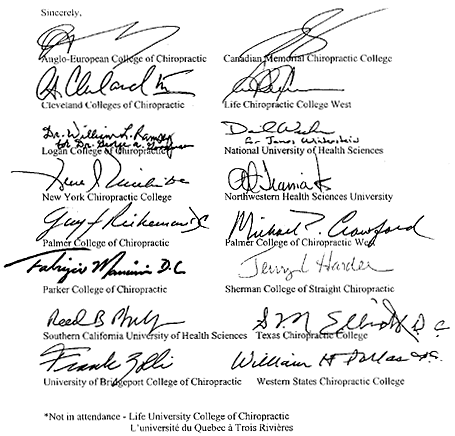 Sincerely,
Anglo-European College of Chiropractic
Canadian Memorial Chiropractic College
Cleveland Colleges of Chiropractic
Life Chiropractic College West
Dr. William L. Ramsey
for Dr. George A.
Logan College of Chiropractic
for James Winterstein
National University of Health Sciences
New York Chiropractic College
Northwestern Health Sciences University
Guy F Riekeman DC
Palmer College of Chiropractic
Michael P. Crawford
Palmer College of Chiropractic West
Fabrizio Mancini D.C
Parker College of Chiropractic
Jerry L Hardee
Sherman College of Straight Chiropractic
Reed B Phillips
Southern California University of Health Sciences
S M Elliott D C
Texas Chiropractic College
Frank Zolli
University of Bridgeport College of Chiropractic
William H Dallas D.C.
Western States Chiropractic College
*Not in attendance - Life University College of Chiropractic
L'université du Quebec à Trois Rivières